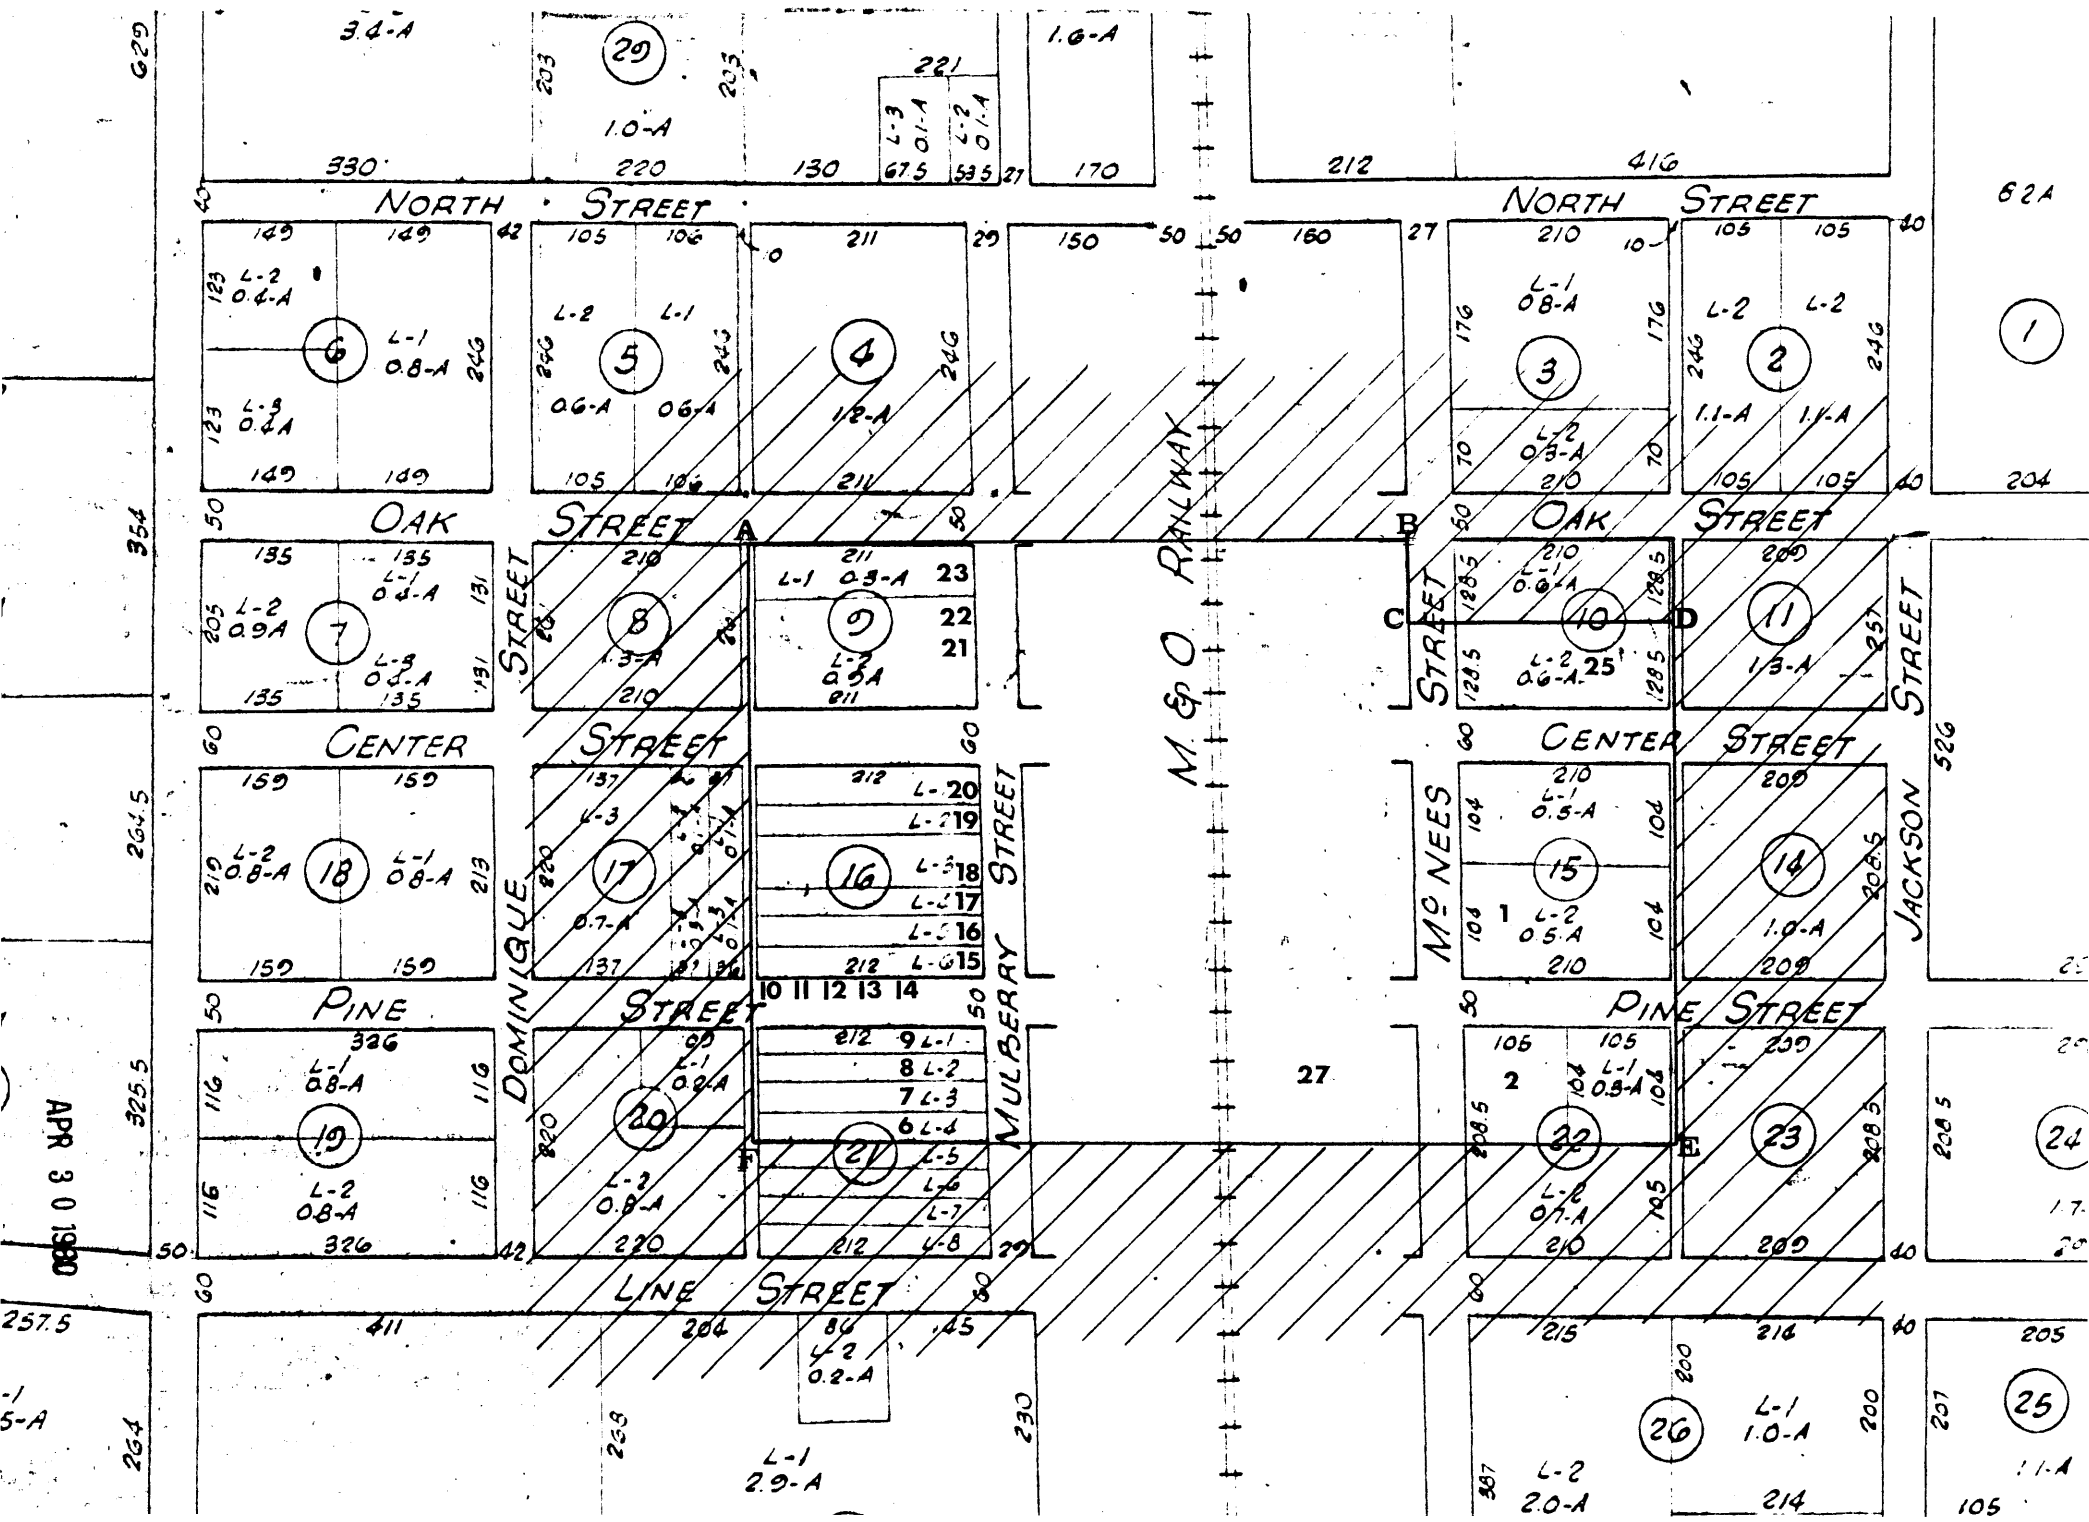 629
3.4-A
29
203
203
1.0-A
221
L-3
0.1-A
L-2
0.1-A
1.6-A
330
220
130
67.5
53.5
27
170
212
416
62A
40
NORTH STREET
NORTH STREET
149
149
42
105
106
0
211
29
150
50
50
160
27
210
10
105
105
40
123
L-2
0.4-A
6
L-1
0.8-A
246
123
L-3
0.4A
149
149
246
L-2
L-1
246
5
0.6-A
0.6-A
105
106
4
246
1.2-A
211
M. & O RAILWAY
176
L-1
0.8-A
176
3
70
L-2
0.3-A
70
210
246
L-2
L-2
246
2
1.1-A
1.1-A
105
105
40
1
204
354
50
OAK STREET
A
50
B
50
OAK STREET
135
135
205
L-2
0.9A
7
L-1
0.4-A
131
L-3
0.4-A
131
135
135
STREET
210
8
1.3-A
210
211
L-1 0.3-A 23
9
22
21
L-2
0.9A
211
C
STREET
210
128.5
L-1
0.6-A
128.5
10
D
128.5
L-2
0.6-A
25
128.5
209
11
257
1.3-A
STREET
60
CENTER STREET
60
60
CENTER STREET
526
264.5
159
159
219
L-2
0.8-A
18
L-1
0.8-A
213
159
159
DOMINIQUE
137
L-3
220
17
0.7-A
137
212
L- 20
L-219
16
L-318
L-417
L-516
212
L-615
10 11 12 13 14
MULBERRY STREET
MC NEES
210
104
L-1
0.5-A
104
15
104
1
L-2
0.5-A
104
210
209
14
208.5
1.0-A
209
JACKSON
50
PINE STREET
50
50
PINE STREET
325.5
326
116
L-1
0.8-A
116
19
116
L-2
0.8-A
116
326
L-1
0.2-A
20
220
L-2
0.8-A
220
212
9 L-1
8 L-2
7 L-3
6 L-4
21
L-5
L-6
L-7
212
L-8
F
27
105
105
2
104
L-1
0.3-A
104
208.5
22
E
L-2
0.7-A
105
210
209
23
208.5
209
208.5
24
1.7-
APR 30 1980
50
42
29
40
60
LINE STREET
60
60
257.5
411
204
86
145
215
214
40
205
L-2
0.2-A
264
268
230
L-1
2.9-A
200
26
L-1
1.0-A
200
207
25
1.1-A
387
L-2
2.0-A
214
105
-1
5-A